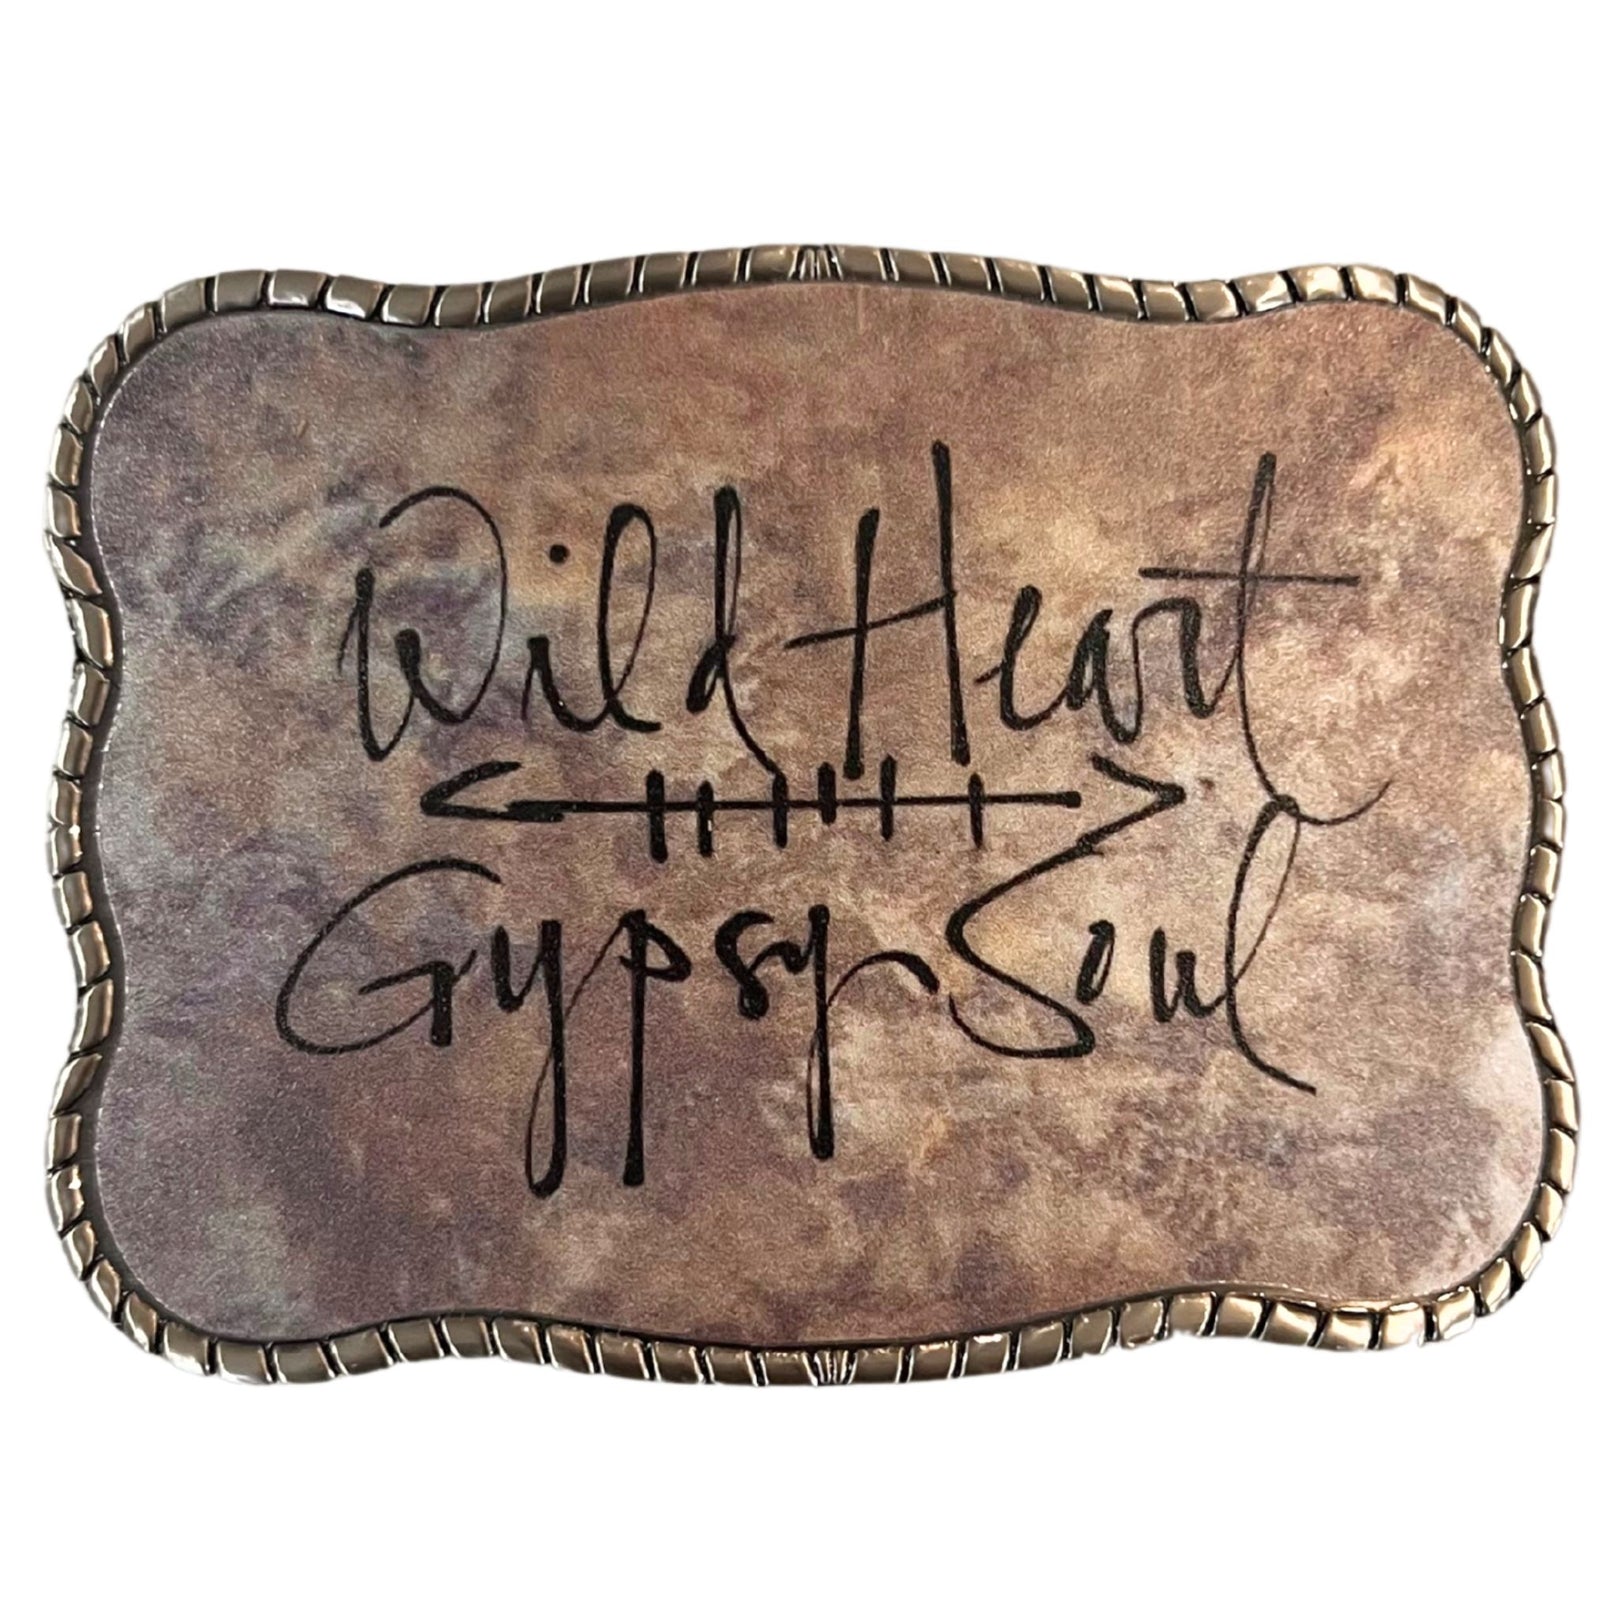 Wild Heart
Gypsy Soul